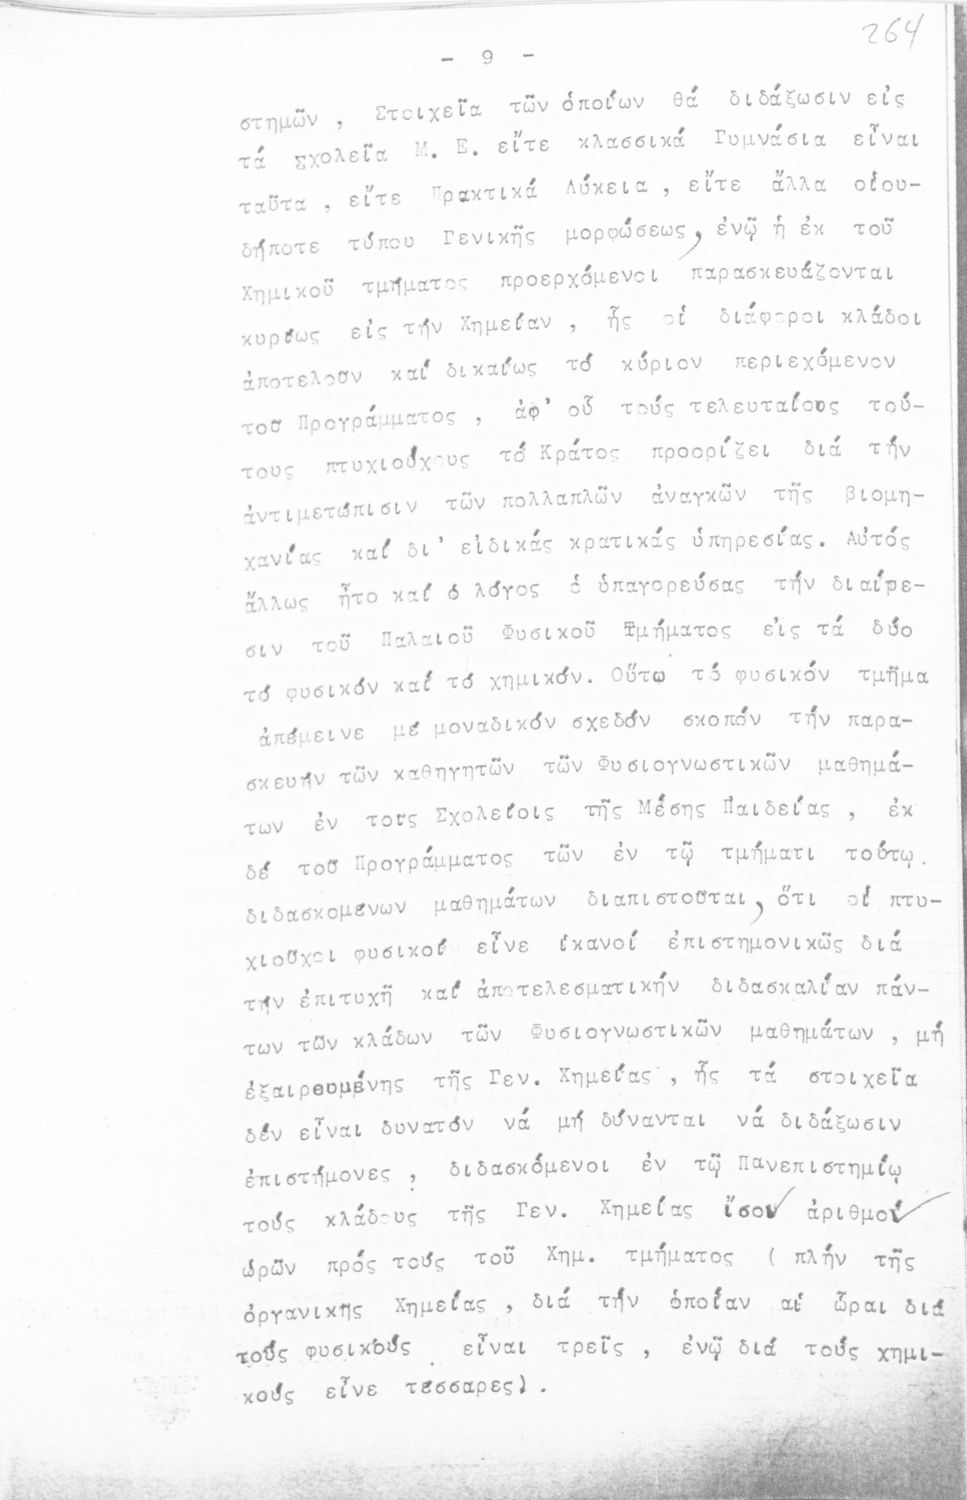 264
- 9 -
στημῶν , Στοιχεῖα τῶν ὁποίων θά διδάξωσιν εἰς
τά σχολεῖα Μ. Ε. εἴτε κλασσικά Γυμνάσια εἶναι
ταῦτα , εἴτε Πρακτικά Λύκεια , εἴτε ἄλλα οἱου-
δήποτε τύπου Γενικῆς μορφώσεως, ἐνῷ ἡ ἐκ τοῦ
Χημικοῦ τμήματος προερχόμενοι παρασκευάζονται
κυρίως εἰς τήν Χημείαν , ἧς οἱ διάφοροι κλάδοι
ἀποτελοῦν καί δικαίως τό κύριον περιεχόμενον
τοῦ Προγράμματος , ἀφ' οὗ τούς τελευταίους τού-
τους πτυχιούχους τό Κράτος προορίζει διά τήν
ἀντιμετώπισιν τῶν πολλαπλῶν ἀναγκῶν τῆς βιομη-
χανίας καί δι' εἰδικάς κρατικάς ὑπηρεσίας. Αὐτός
ἄλλως ἦτο καί ὁ λόγος ὁ ὑπαγορεύσας τήν διαίρε-
σιν τοῦ Παλαιοῦ Φυσικοῦ Τμήματος εἰς τά δύο
τό φυσικόν καί τό χημικόν. Οὕτω τό φυσικόν τμῆμα
ἀπέμεινε μέ μοναδικόν σχεδόν σκοπόν τήν παρα-
σκευήν τῶν καθηγητῶν τῶν Φυσιογνωστικῶν μαθημά-
των ἐν τοῖς Σχολείοις τῆς Μέσης Παιδείας , ἐκ
δέ τοῦ Προγράμματος τῶν ἐν τῷ τμήματι τούτῳ
διδασκομένων μαθημάτων διαπιστοῦται, ὅτι οἱ πτυ-
χιοῦχοι φυσικοί εἶνε ἱκανοί ἐπιστημονικῶς διά
τήν ἐπιτυχῆ καί ἀποτελεσματικήν διδασκαλίαν πάν-
των τῶν κλάδων τῶν Φυσιογνωστικῶν μαθημάτων , μή
ἐξαιρουμένης τῆς Γεν. Χημείας , ἧς τά στοιχεῖα
δέν εἶναι δυνατόν νά μή δύνανται νά διδάξωσιν
ἐπιστήμονες , διδασκόμενοι ἐν τῷ Πανεπιστημίῳ
τούς κλάδους τῆς Γεν. Χημείας ἴσον ἀριθμόν
ὡρῶν πρός τούς τοῦ Χημ. τμήματος ( πλήν τῆς
ὀργανικῆς Χημείας , διά τήν ὁποίαν αἱ ὧραι διά
τούς φυσικούς εἶναι τρεῖς , ἐνῷ διά τούς χημι-
κούς εἶνε τέσσαρες) .